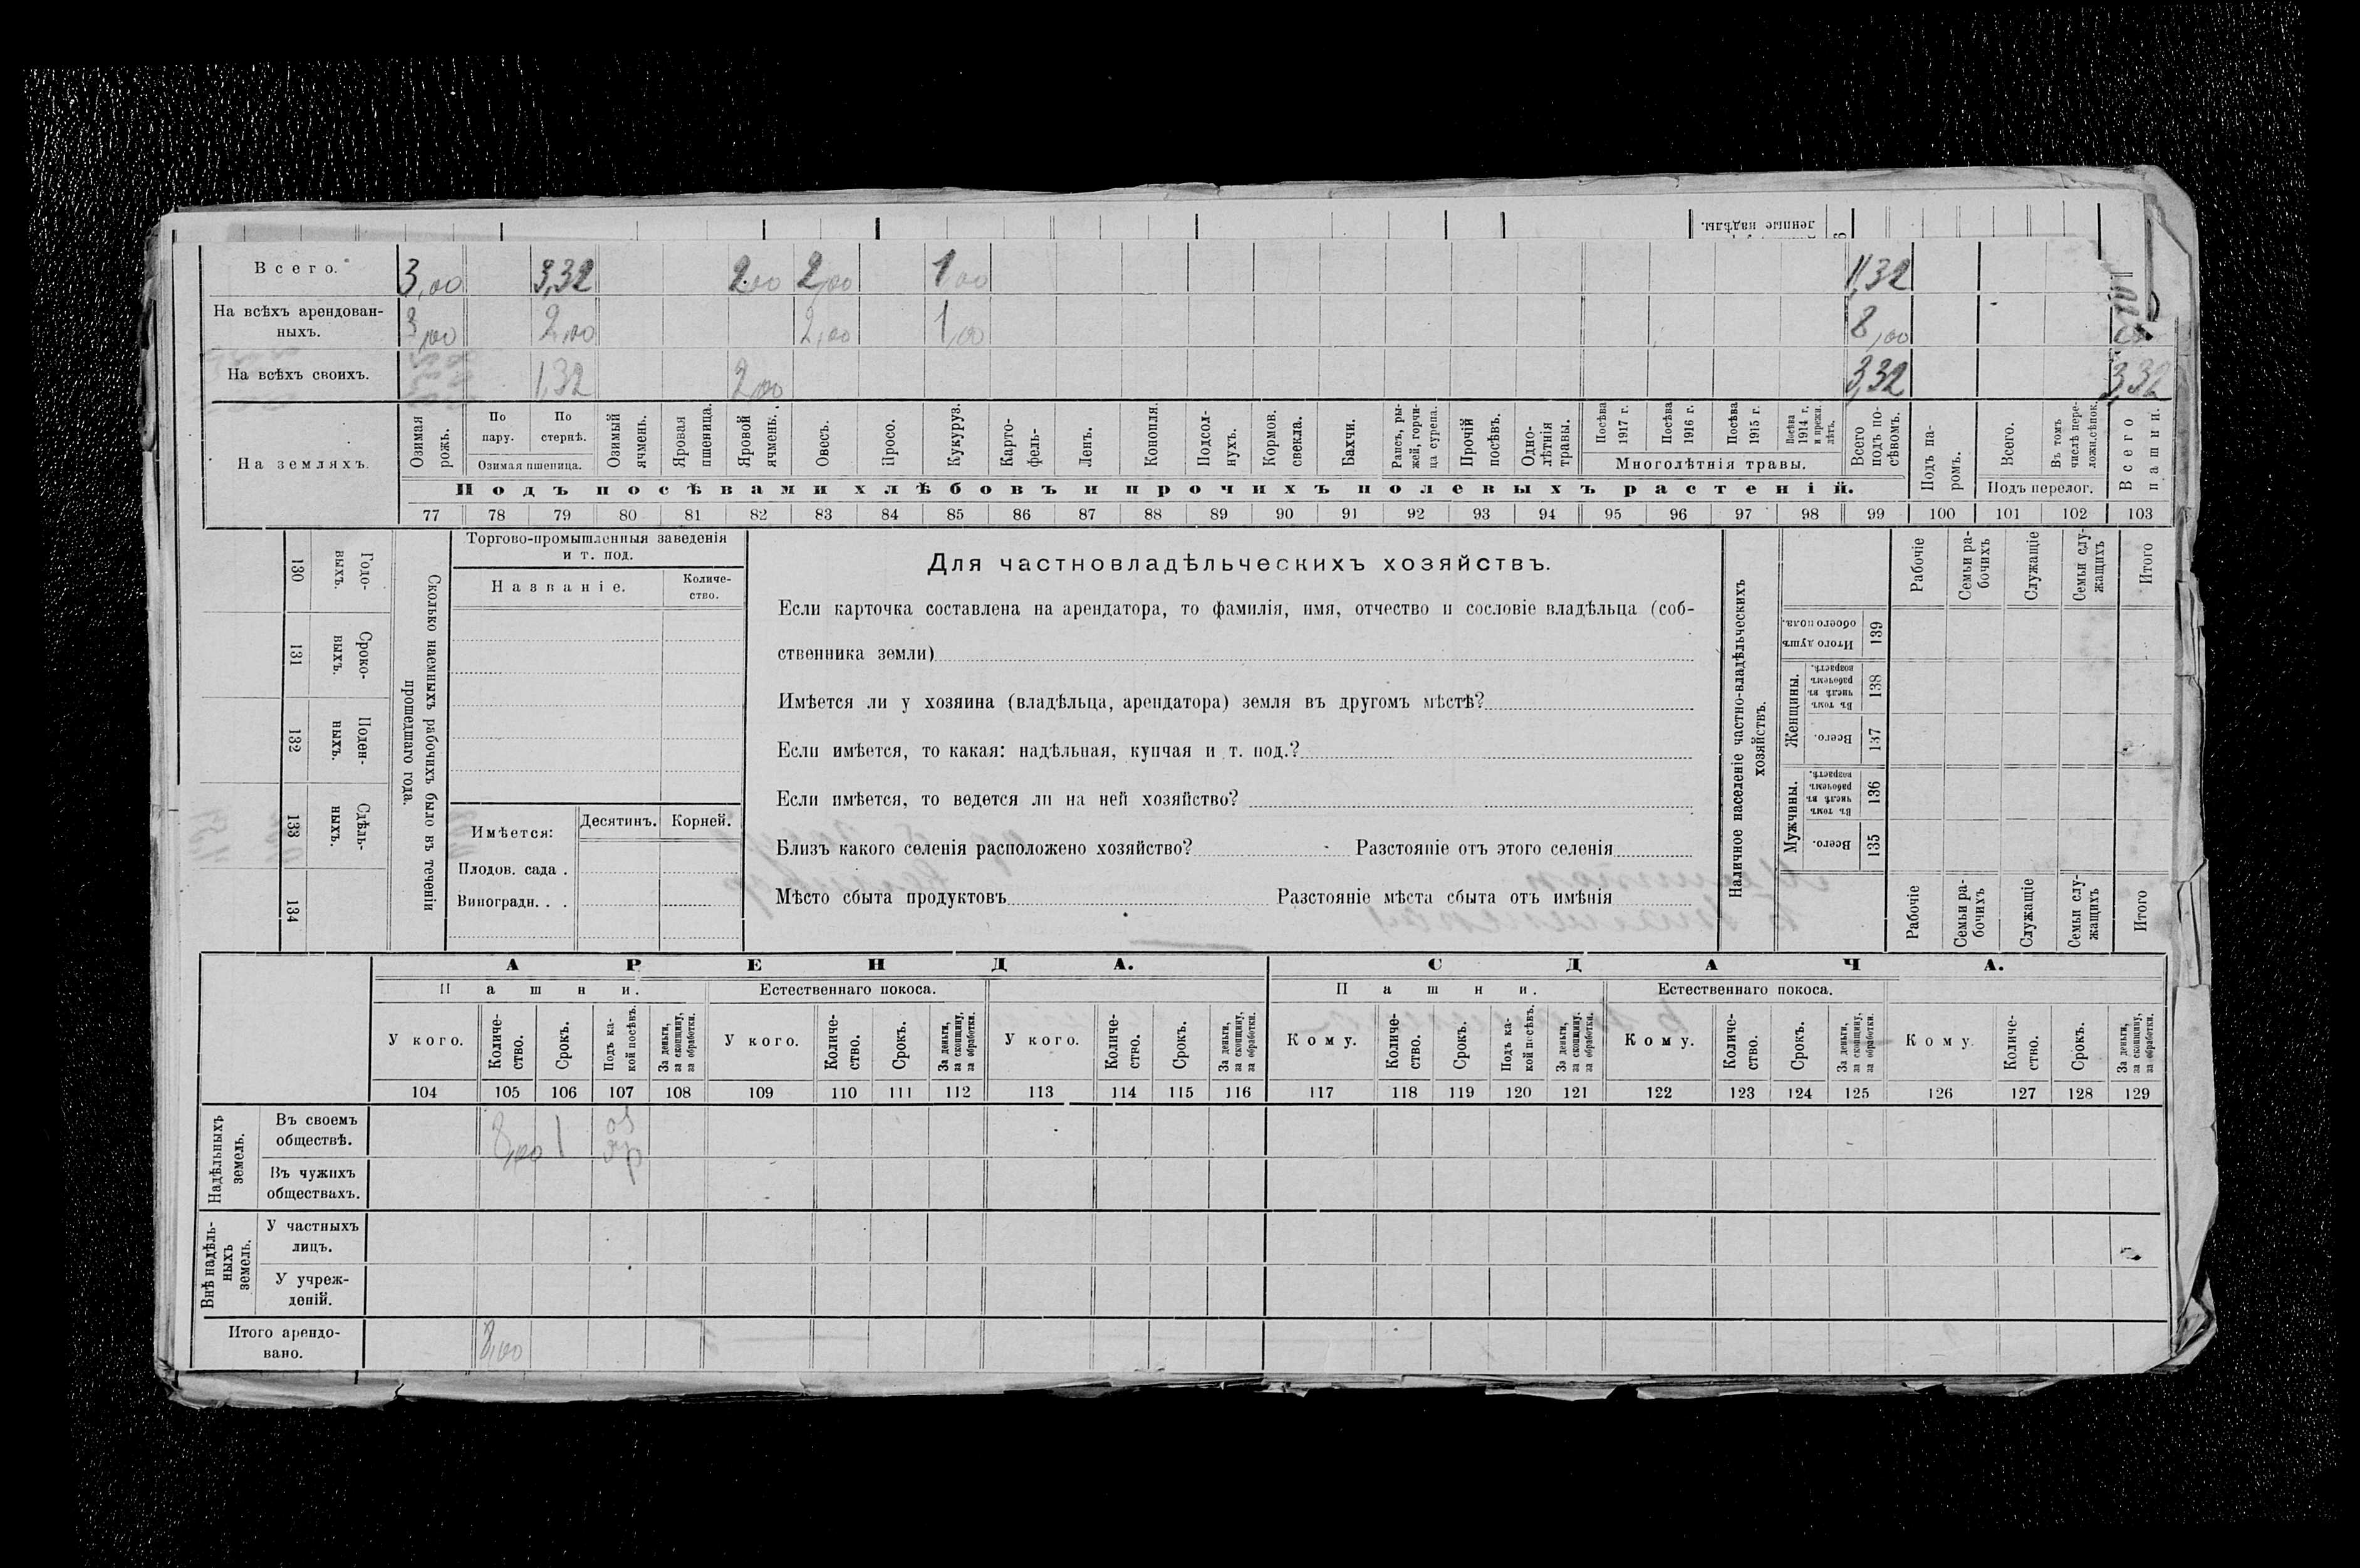 ленные надѣлы.
Всего. 3,00 3,32 2,00 2,00 1,00 11,32
На всѣхъ арендован-
ныхъ. 3,00 2,00 2,00 1,00 8,00
На всѣхъ своихъ. 1,32 2,00 3,32 3,32
На земляхъ.
Озимая рожь.
По пару.
По стернѣ.
Озимая пшеница.
Озимый ячмень.
Яровая пшеница.
Яровой ячмень.
Овесъ.
Просо.
Кукуруз.
Карто-
фель.
Ленъ.
Конопля.
Подсол-
нухъ.
Кормов. свекла.
Бахчи.
Рапсъ, ры-
жей, горчи-
ца сурепа.
Прочій посѣвъ.
Одно-
лѣтнія травы.
Посѣва 1917 г.
Посѣва 1916 г.
Посѣва 1915 г.
Посѣва 1914 г. и прежн. лѣтъ.
Многолѣтнія травы.
Всего подъ по-
сѣвомъ.
Подъ па-
ромъ.
Всего.
Въ томъ числѣ пере-
ложн.сѣнок.
Подъ перелог.
Всего пашни.
Подъ посѣвами хлѣбовъ и прочихъ полевыхъ растеній.
77 78 79 80 81 82 83 84 85 86 87 88 89 90 91 92 93 94 95 96 97 98 99 100 101 102 103
Сколько наемныхъ рабочихъ было въ теченіи
прошедшаго года.
Годо-
выхъ.
130
Сроко-
выхъ.
131
Поден-
ныхъ.
132
Сдѣль-
ныхъ.
133
134
Торгово-промышленныя заведенія
и т. под.
Названіе.
Количе-
ство.
Имѣется:
Десятинъ. Корней.
Плодов. сада .
Виноградн. . .
Для частновладѣльческихъ хозяйствъ.
Если карточка составлена на арендатора, то фамилія, имя, отчество и сословіе владѣльца (соб-
ственника земли)
Имѣется ли у хозяина (владѣльца, арендатора) земля въ другомъ мѣстѣ?
Если имѣется, то какая: надѣльная, купчая и т. под.?
Если имѣется, то ведется ли на ней хозяйство?
Близъ какого селенія расположено хозяйство? Разстояніе отъ этого селенія
Мѣсто сбыта продуктовъ Разстояніе мѣста сбыта отъ имѣнія
Наличное населеніе частно-владѣльческихъ
хозяйствъ.
Рабочіе
Семьи ра-
бочихъ
Служащіе
Семьи слу-
жащихъ
Итого
Итого душъ
обоего пола.
139
Женщины.
Въ томъ числѣ въ рабочемъ возрастѣ.
138
Всего.
137
Мужчины.
Въ томъ числѣ въ рабочемъ возрастѣ.
136
Всего.
135
Рабочіе
Семьи ра-
бочихъ
Служащіе
Семьи слу-
жащихъ
Итого
АРЕНДА. СДАЧА.
Пашни. Естественнаго покоса. Пашни. Естественнаго покоса.
У кого.
Количе-
ство.
Срокъ.
Подъ ка-
кой посѣвъ.
За деньги,
за скопщину,
за обработки.
У кого.
Количе-
ство.
Срокъ.
За деньги,
за скопщину,
за обработки.
У кого.
Количе-
ство.
Срокъ.
За деньги,
за скопщину,
за обработки.
Кому.
Количе-
ство.
Срокъ.
Подъ ка-
кой посѣвъ.
За деньги,
за скопщину,
за обработки.
Кому.
Количе-
ство.
Срокъ.
За деньги,
за скопщину,
за обработки.
Кому
Количе-
ство.
Срокъ.
За деньги,
за скопщину,
за обработки.
104 105 106 107 108 109 110 111 112 113 114 115 116 117 118 119 120 121 122 123 124 125 126 127 128 129
Надѣльныхъ
земель.
Въ своемъ
обществѣ. 8,00 1 оз
яр
Въ чужихъ
обществахъ.
Внѣ надѣль-
ныхъ
земель.
У частныхъ
лицъ.
У учреж-
деній.
Итого арендо-
вано. 8,00